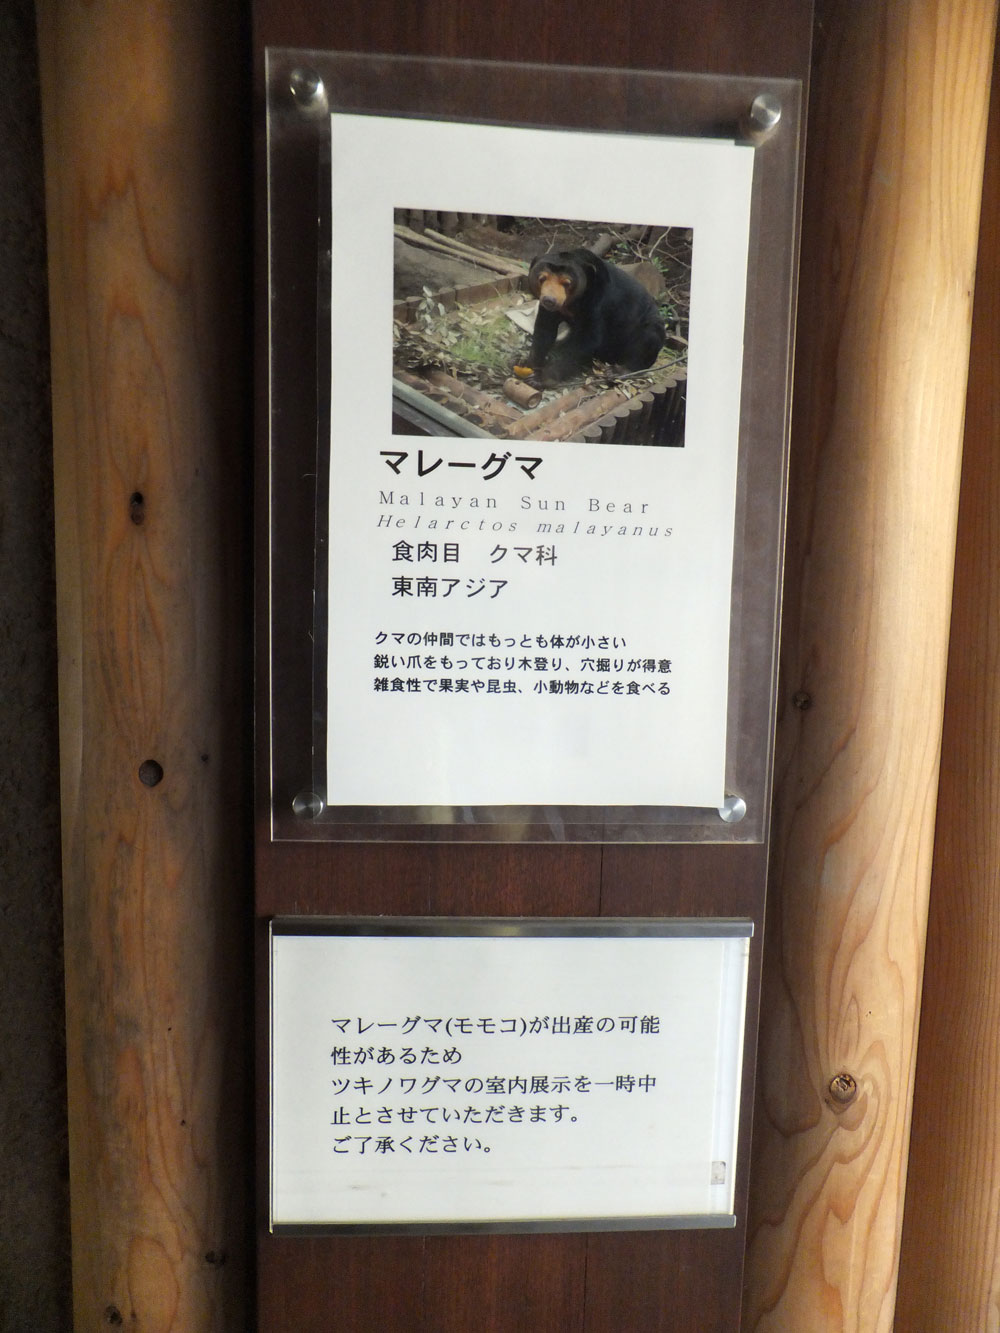 マレーグマ
Malayan Sun Bear
Helarctos malayanus
食肉目　クマ科
東南アジア
クマの仲間ではもっとも体が小さい
鋭い爪をもっており木登り、穴掘りが得意
雑食性で果実や昆虫、小動物などを食べる
マレーグマ(モモコ)が出産の可能
性があるため
ツキノワグマの室内展示を一時中
止とさせていただきます。
ご了承ください。